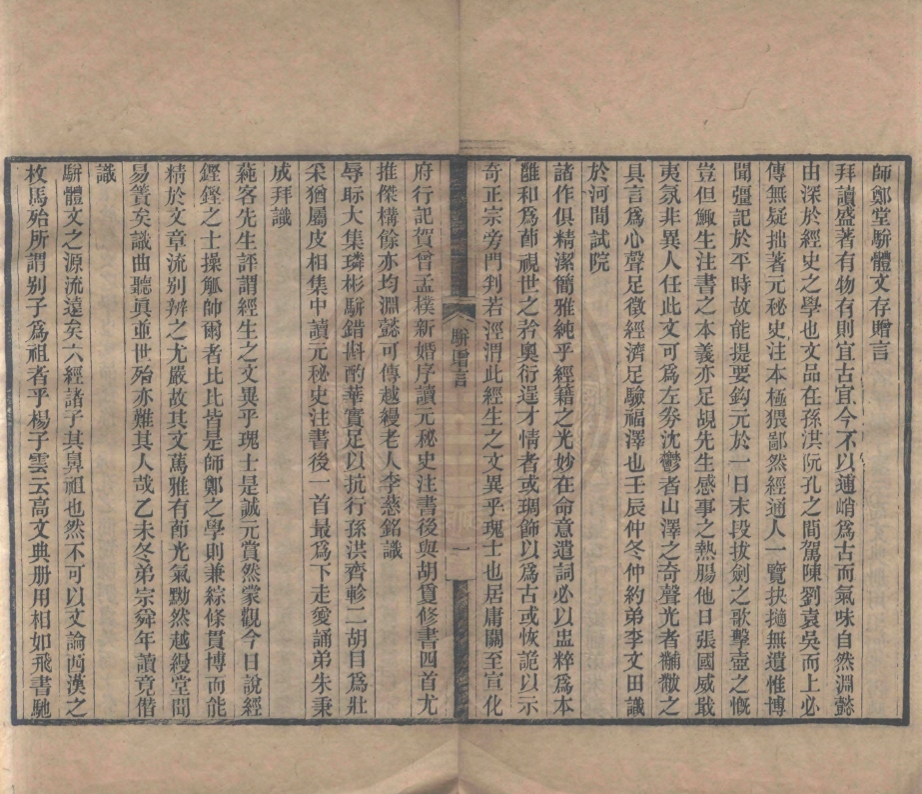 師鄭堂駢體文存贈言
拜讀盛著有物有則宜古宜今不以逋峭爲古而氣味自然淵懿
由深於經史之學也文品在孫洪阮孔之間駕陳劉袁吳而上必
傳無疑拙著元秘史注本極猥鄙然經通人一覽抉擿無遺惟博
聞彊記於平時故能提要鈎元於一日末段拔劍之歌擊壺之慨
豈但鯫生注書之本義亦足覘先生感事之熱腸他日張國威戢
夷氛非異人任此文可爲左劵沈鬱者山澤之奇聲光者黼黻之
具言爲心聲足徵經濟足驗福澤也壬辰仲冬仲約弟李文田識
於河間試院
諸作俱精潔簡雅純乎經籍之光妙在命意遣詞必以盅粹爲本
雝和爲節視世之矜奧衍逞才情者或琱飾以爲古或恢詭以示
奇正宗旁門判若涇渭此經生之文異乎瑰士也居庸關至宣化
府行記賀曾孟樸新婚序讀元秘史注書後與胡賁修書四首尤
推傑構餘亦均淵懿可傳越縵老人李慈銘識
辱眎大集璘彬駢錯斟酌華實足以抗行孫洪齊軫二胡目爲壯
采猶屬皮相集中讀元秘史注書後一首最爲下走愛誦弟朱秉
成拜識
蒓客先生評謂經生之文異乎瑰士是誠元賞然蒙觀今日說經
鏗鏗之士操觚帥爾者比比皆是師鄭之學則兼綜條貫博而能
精於文章流别辨之尤嚴故其文萬雅有節光氣黝然越縵堂間
易簀矣識曲聽眞並世殆亦難其人哉乙未冬弟宗舜年讀竟偕
識
駢體文之源流遠矣六經諸子其鼻祖也然不可以文論西漢之
枚馬殆所謂别子爲祖者乎楊子雲云高文典册用相如飛書馳
駢贈言
一